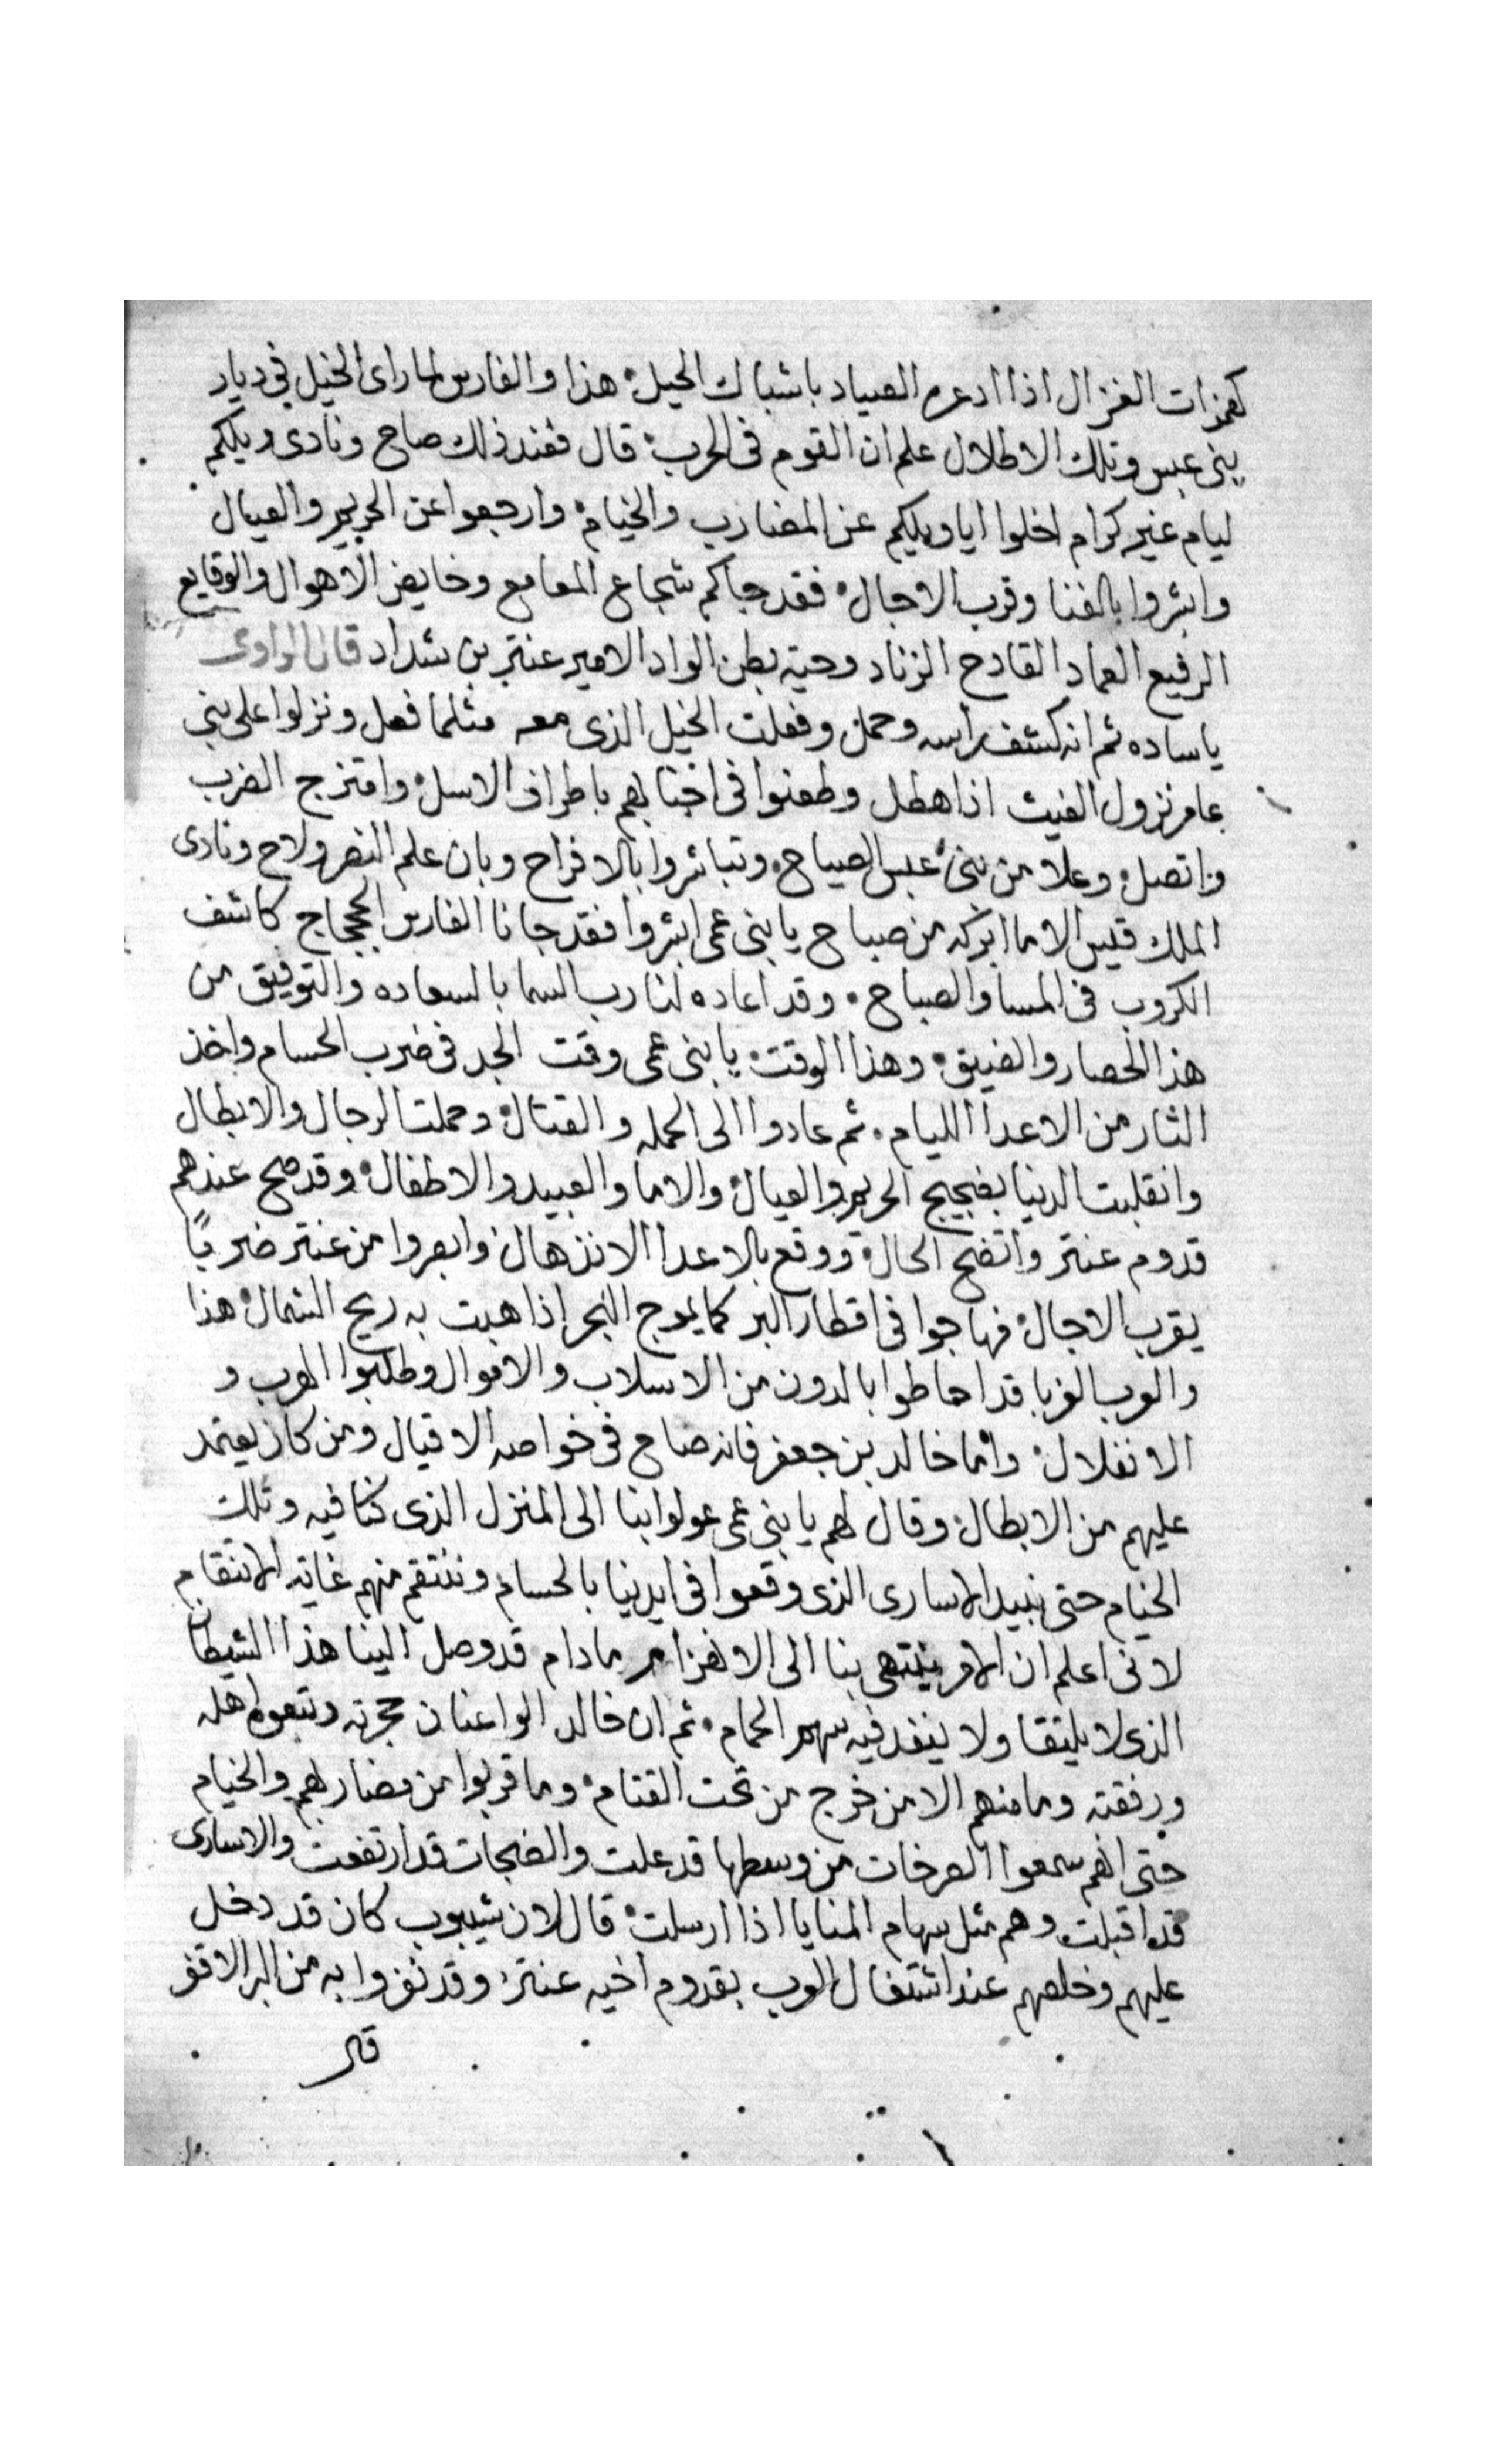 كهمزات الغزال اذا ادعره الصياد باشباك الحيل؛ هذا والفارس لما راى الخيل في ديار
بنى عبس وتلك الاطلال علم ان القوم فى الحرب؛ قال فعند ذلك صاح ونادى ويلكم
ليام غير كرام اخلوا ايا ويلكم عن المضارب والخيام؛ وارجعوا عن الحريم والعيال
وابشروا بالفنا وقرب الاجال؛ فقد جاكم شجاع المعامع وخايض الاهوال والوقايع
الرفيع العماد القادح الزناد وحية بطن الواد الامير عنتر بن شداد قال الراوى
ياساده ثم انه كشف راسه وحمل وفعلت الخيل الذى معه مثلما فعل ونزلوا على بنى
عامر نزول الغيث اذا هطل وطعنوا فى اجنابهم باطراف الاسل؛ وامتزج الضرب
واتصل؛ وعلا من بنى عبس الصياح؛ وتباشروا بالافراح وبان علم النصر ولاح ونادى
الملك قيس الا ما ابركه من صباح يا بنى عمى ابشروا فقد جانا الفارس الجحجاج كاشف
الكروب فى المسا والصباح؛ وقد اعاده لنا رب السما بالسعاده والتوفيق من
هذا الحصار والضيق؛ وهذا الوقت؛ يا بنى عمى وقت الجد فى ضرب الحسام واخذ
الثار من الاعدا الليام؛ ثم عادوا الى الحمله والقتال؛ وحملت الرجال والابطال
وانقلبت الدنيا بضجيج الحريم والعيال؛ والاما والعبيد والاطفال؛ وقد صح عندهم
قدوم عنتر واتضح الحال؛ ووقع بالاعدا الانذهال؛ وابصروا من عنتر ضربًا
يقرب الاجال؛ فهاجوا فى اقطار البر كما يموج البحر اذا هبت به ريح الشمال؛ هذا
والعرب الغربا قد احاطوا بالدون من الاسلاب والاموال وطلبوا الهرب و
الانفلال؛ واما خالد بن جعفر فانه صاح فى خواصه الاقيال ومن كان يعتمد
عليهم من الابطال؛ وقال لهم يا بنى عمى عولوا بنا الى المنزل الذى كنا فيه وتلك
الخيام حتى نبيد الاسارى الذى وقعوا فى ايدينا بالحسام وننتقم منهم غاية الانتقام
لانى اعلم ان الامر ينتهى بنا الى الانهزام مادام قد وصل الينا هذا الشيطان
الذى لا يلتقا ولا ينفد فيه سهم الحمام؛ ثم ان خالد الوا عنان حجرته وتبعوه اهله
ورفقته وما منهم الا من خرج من تحت القتام؛ وما قربوا من مضاربهم والخيام
حتى انهم سمعوا الصرخات من وسطها قد علت والضجات قد ارتفعت والاسارى
قد اقبلت وهم مثل سهام المنايا اذا ارسلت؛ قال لان شيبوب كان قد دخل
عليهم وخلصهم عند اشتغال العرب بقدوم اخيه عنتر؛ وقد نفروا به من البر الاقفر
قال